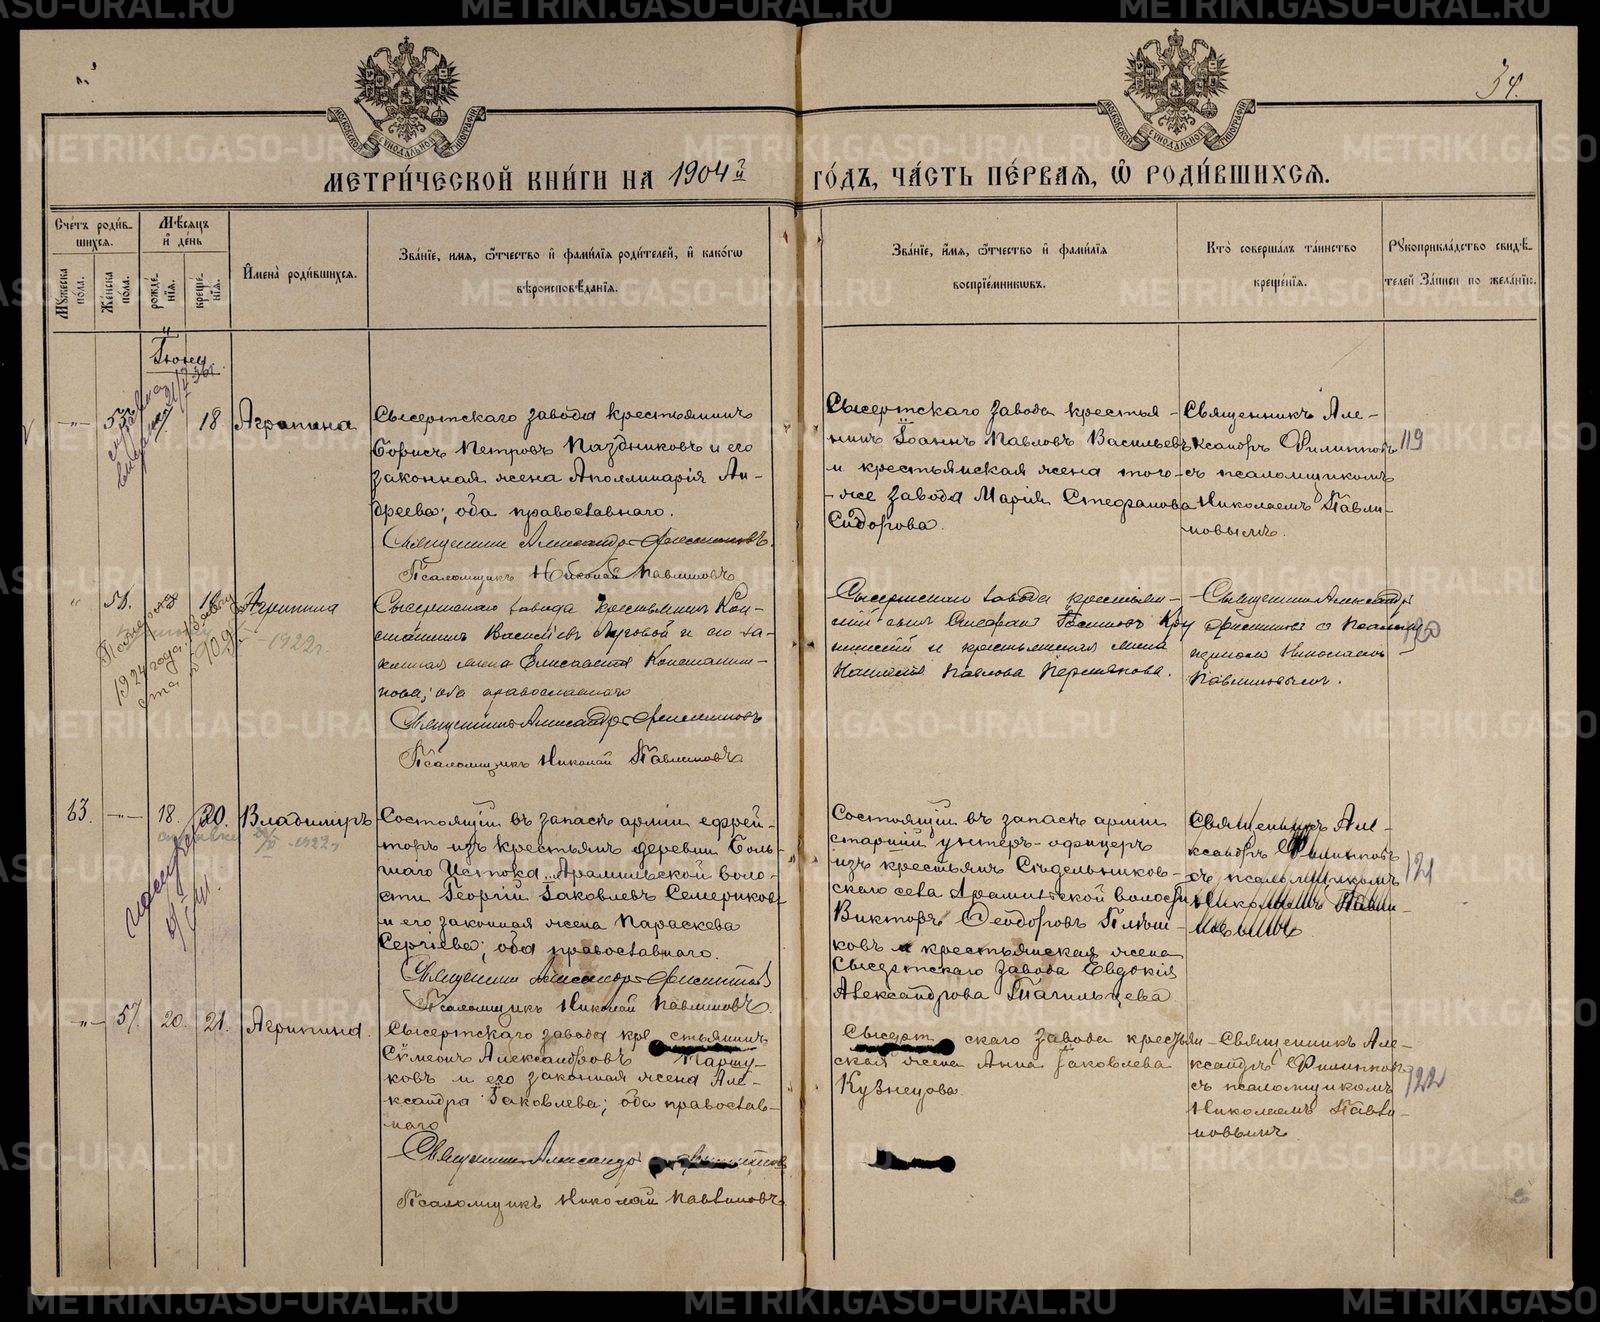 34.
МОСКОВСКОЙ СѴНОДАЛЬНОЙ ТИПОГРАФІИ
МОСКОВСКОЙ СѴНОДАЛЬНОЙ ТИПОГРАФІИ
МЕТРИ́ЧЕСКОЙ КНИ́ГИ НА 1904й ГО́ДЪ, ЧА́СТЬ ПЕ́РВАЯ, Ѡ РОДИ́ВШИХСЯ.
Сче́тъ роди́в-
шихся.
Мѣ́сяцъ
и҆ де́нь
Мꙋ́жеска
по́ла.
Же́нска
по́ла.
рожде́-
нїя.
креще́-
нїя.
И҆мена̀ роди́вшихся.
Зва́нїе, имя, ѻ҆́тчество и҆ фами́лїя роди́телей, и҆ како́гѡ
вѣроисповѣ́данїя.
Зва́нїе, и҆́мя, ѻ҆́тчество и҆ фами́лїя
воспрїе́мникѡвъ.
Кто̀ соверша́лъ та́инство
креще́нїя.
Рꙋкоприкла́дство свидѣ́-
телей за́писи по жела́нїю.
Іюнь
55. 18. Агрипина
Сысертскаго завода крестьянинъ
Борисъ Петровъ Паздниковъ и его
законная жена Аполлинарія Ан-
дреева; оба православнаго.
Священникъ Александръ Филипповъ
Псаломщикъ Николай Павлиновъ
Сысертскаго завода крестья-
нинъ Іоаннъ Павловъ Васильевъ
и крестьянская жена того-
-же завода Марія Стефанова
Сидорова.
Священникъ Але-
ксандръ Филипповъ
съ псаломщикомъ
Николаемъ Павли-
новымъ.
119
Агрипина
1922г.
1924 года
Сысертскаго завода крестьянинъ Кон-
стантинъ Васильевъ Луговой и его за-
конная жена Елисавета Константи-
нова; оба православнаго
Священникъ Александръ Филипповъ
Псаломщикъ Николай Павлиновъ
Сысертскаго завода крестьян-
скій сынъ
и крестьянская жена
Наталія Павлова Пермякова.
Священникъ Александръ
Филипповъ съ псалом-
щикомъ Николаемъ
Павлиновымъ.
120
63. 18. 20. Владимиръ
1922г
Состоящій въ запасѣ арміи ефрей-
торъ изъ крестьянъ деревни Боль-
шаго Истока, Арамильской воло-
сти Георгій Іаковлевъ Семериковъ
и его законная жена Параскева
Сергіева; оба православнаго.
Священникъ Александръ Филипповъ
Псаломщикъ Николай Павлиновъ.
Состоящій въ запасѣ арміи
старшій унтеръ-офицеръ
изъ крестьянъ Сѣдельников-
скаго села Арамильской волости
Викторъ Ѳеодоровъ
и крестьянская жена
Сысертскаго завода Евдокія
Александрова Тагильцева
Священникъ Але-
ксандръ Филипповъ
съ псаломщикомъ
Николаемъ Павли-
новымъ.
121
57. 20. 21. Агрипина.
Сысертскаго завода крестьянинъ
Симеонъ Александровъ
и его законная жена Але-
ксандра Іаковлева; оба православ-
наго
Священникъ Александръ
Псаломщикъ Николай Павлиновъ
Сысертскаго завода крестьян-
ская жена Анна Іаковлева
Кузнецова
Священникъ Але-
ксандръ Филипповъ
съ псаломщикомъ
Николаемъ Павли-
новымъ
122
METRIKI.GASO-URAL.RU